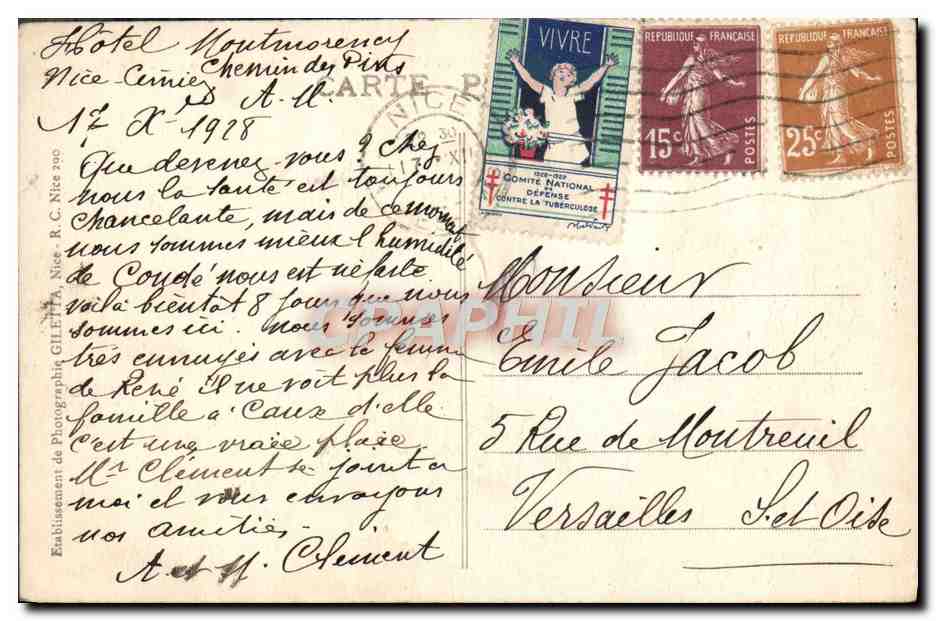 Hôtel Montmorency
Chemin des Pins
Nice Cimiez
A. M.
CARTE P
17 X 1928
NICE
30
17 XI
VIVRE
1928-1929
COMITÉ NATIONAL
DE
DÉFENSE
CONTRE LA TUBERCULOSE
REPUBLIQUE FRANÇAISE
15c
POSTES
REPUBLIQUE FRANÇAISE
25c
POSTES
Que devenez-vous ? chez
nous la santé est toujours
chancelante, mais de ce moment
nous sommes mieux l'humidité
de Condé nous est néfaste
voilà bientôt 8 jours que nous
sommes ici. nous sommes
très ennuyés avec la femme
de René il ne voit plus la
famille à cause d'elle
c'est une vraie plaie
Mr Clément se joint à
moi et vous envoyons
nos amitiés.
A. et M. Clément
Monsieur
Emile Jacob
5 Rue de Montreuil
Versailles S. et Oise
Etablissement de Photographie GILETTA, Nice - R. C. Nice 290
CPAPHIL